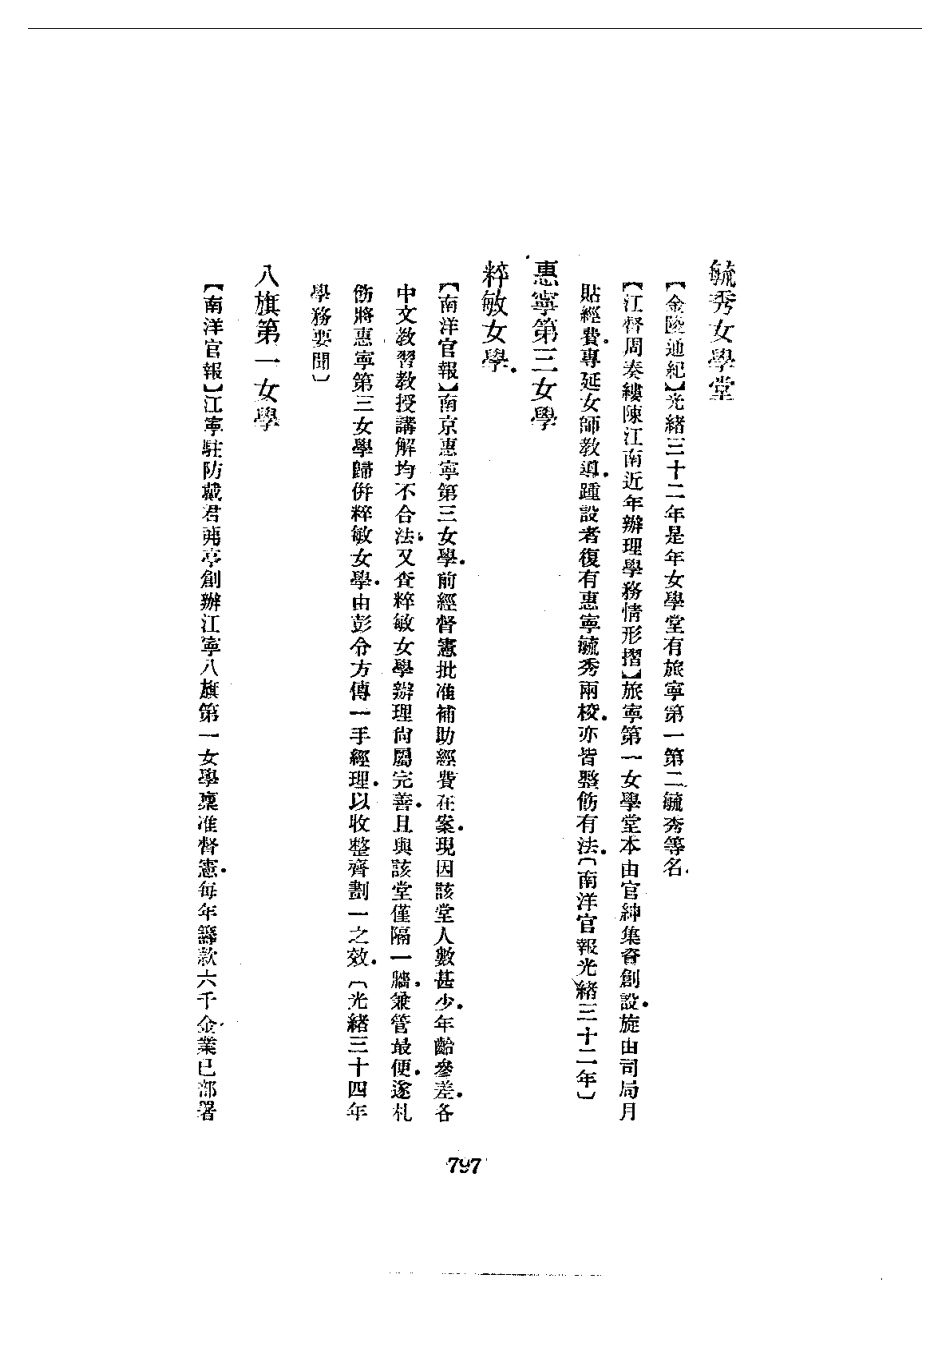 毓秀女學堂
【金陵通紀】光緒三十二年是年女學堂有旅寧第一第二毓秀等名．
【江督周奏縷陳江南近年辦理學務情形摺】旅寧第一女學堂本由官紳集資創設．旋由司局月
貼經費．專延女師教導．踵設者復有惠寧毓秀兩校．亦皆整飭有法．〔南洋官報光緒三十二年〕
惠寧第三女學
粹敏女學．
【南洋官報】南京惠寧第三女學．前經督憲批准補助經費在案．現因該堂人數甚少．年齡參差．各
中文教習教授講解均不合法．又查粹敏女學辦理尙屬完善．且與該堂僅隔一牆．兼管最便．遂札
飭將惠寧第三女學歸併粹敏女學．由彭令方傳一手經理．以收整齊劃一之效．〔光緒三十四年
學務要聞〕
八旗第一女學
【南洋官報】江寧駐防戴君蒓亭創辦江寧八旗第一女學稟准督憲．每年籌款六千金．業已部署
797